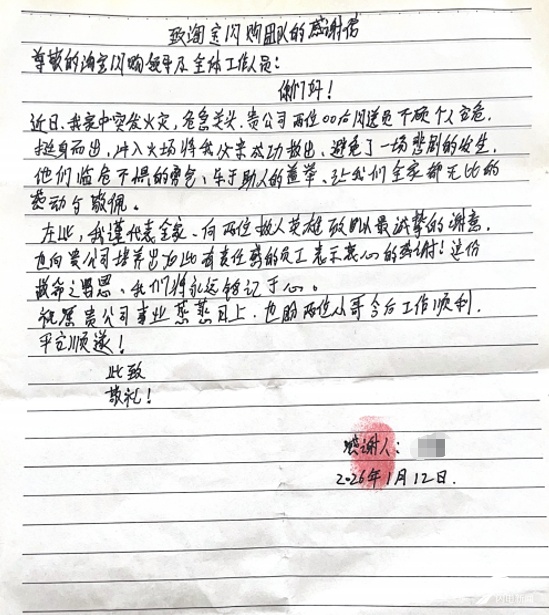 致淘宝闪购团队的感谢信
尊敬的淘宝闪购领导及全体工作人员：
你们好！
近日、我家中突发火灾，危急关头、贵公司两位00后闪送员不顾个人安危，
挺身而出，冲入火场将我父亲成功救出、避免了一场悲剧的发生，
他们临危不惧的勇气、乐于助人的善举、让我们全家都无比的
感动与敬佩。
在此，我谨代表全家、向两位救人英雄致以最诚挚的谢意，
也向贵公司培养出如此有责任感的员工表示衷心的感谢！这份
救命之恩恩、我们将永远铭记于心。
祝愿贵公司事业蒸蒸日上、也盼两位小哥今后工作顺利，
平安顺遂！
此致
敬礼！
感谢人：
2026年1月12日.